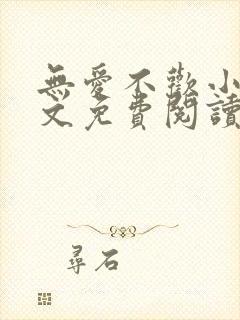 無愛不歡小
文免費閱讀
尋石